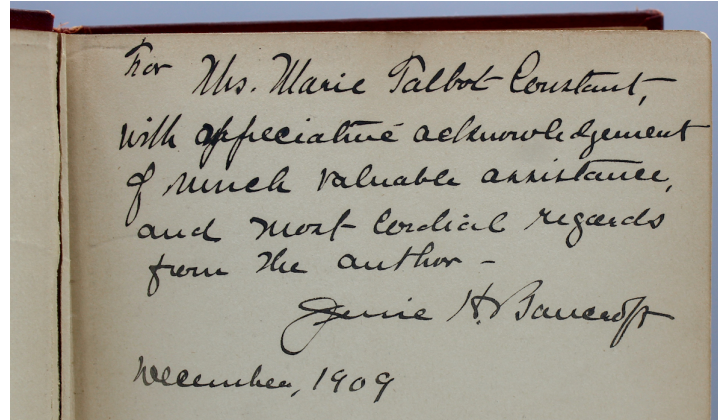 For Mrs. Marie Talbot Constant,
with appreciative acknowledgement
of much valuable assistance,
and most cordial regards
from the author –
Jenie H. Bancroft
December, 1909